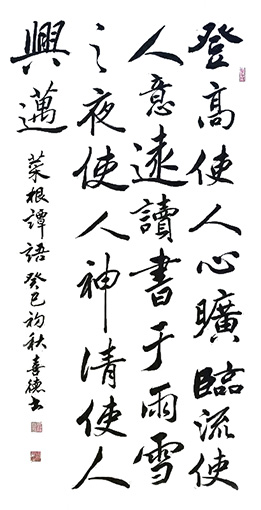 登高使人心曠臨流使
人意遠讀書于雨雪
之夜使人神清使人
興邁
菜根譚語癸巳初秋喜德書